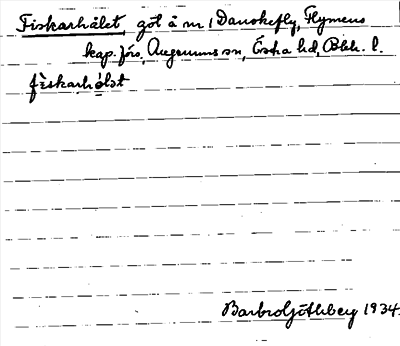 Fiskarhålet, göl å nr 1 Danskefly, Flymens
kap. förs., Augerums sn, Östra hd, Blek. l.
fìskarhålət
Barbro Göthberg 1934.